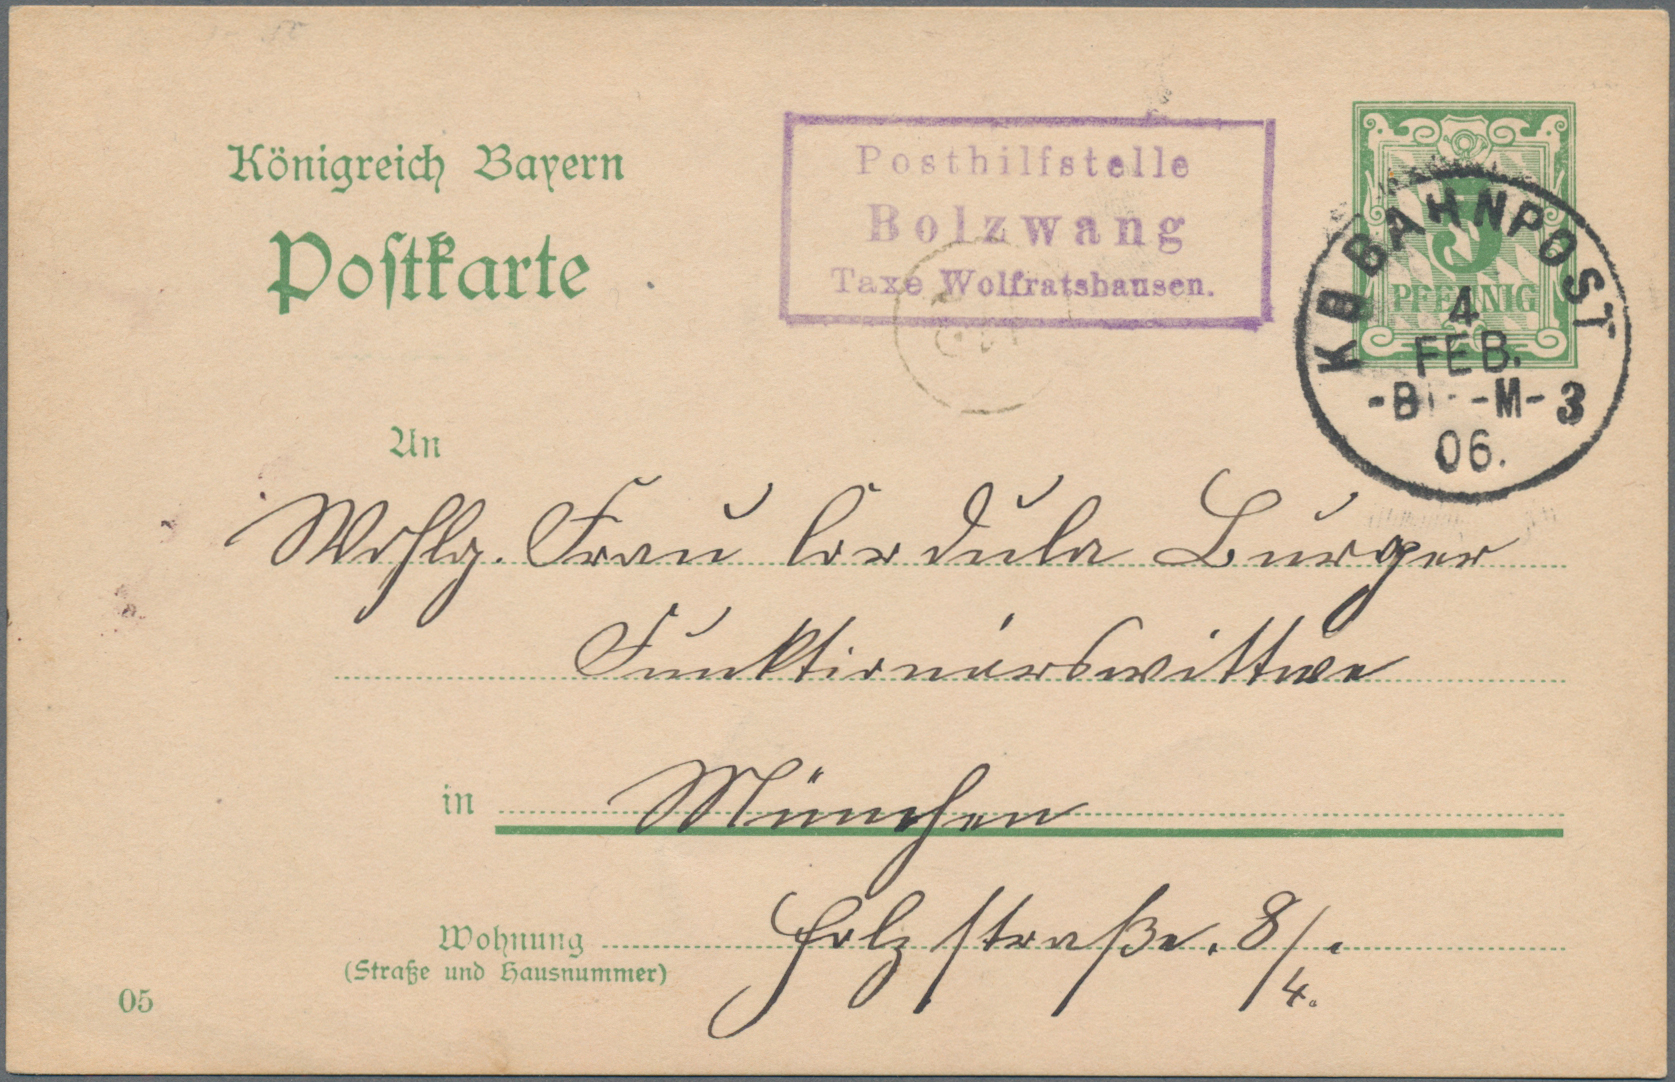 Königreich Bayern
Postkarte
Posthilfstelle
Bolzwang
Taxe Wolfratshausen.
5
PFENNIG
K B BAHNPOST
4
FEB.
-B -M- 3
06.
An
Wohlg. Frau Cordula Burger
Funktionärswittwe
in München
Wohnung Holzstraße. 8/4.
(Straße und Hausnummer)
05